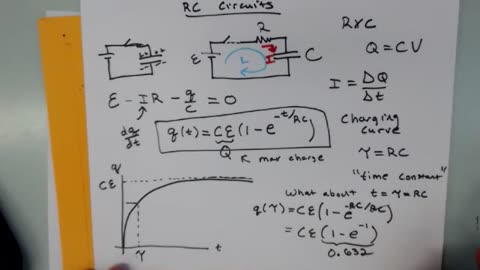 RC Circuits
R
ε
L
I
C
RxC
Q = CV
I = ΔQ/Δt
ε - IR - q/C = 0
dq/dt
q(t) = Cε(1 - e^{-t/RC})
Q
max charge
Charging curve
τ = RC
"time constant"
What about t = τ = RC
q(τ) = Cε(1 - e^{-RC/RC})
= Cε(1 - e^{-1})
0.632
q
Cε
τ
t